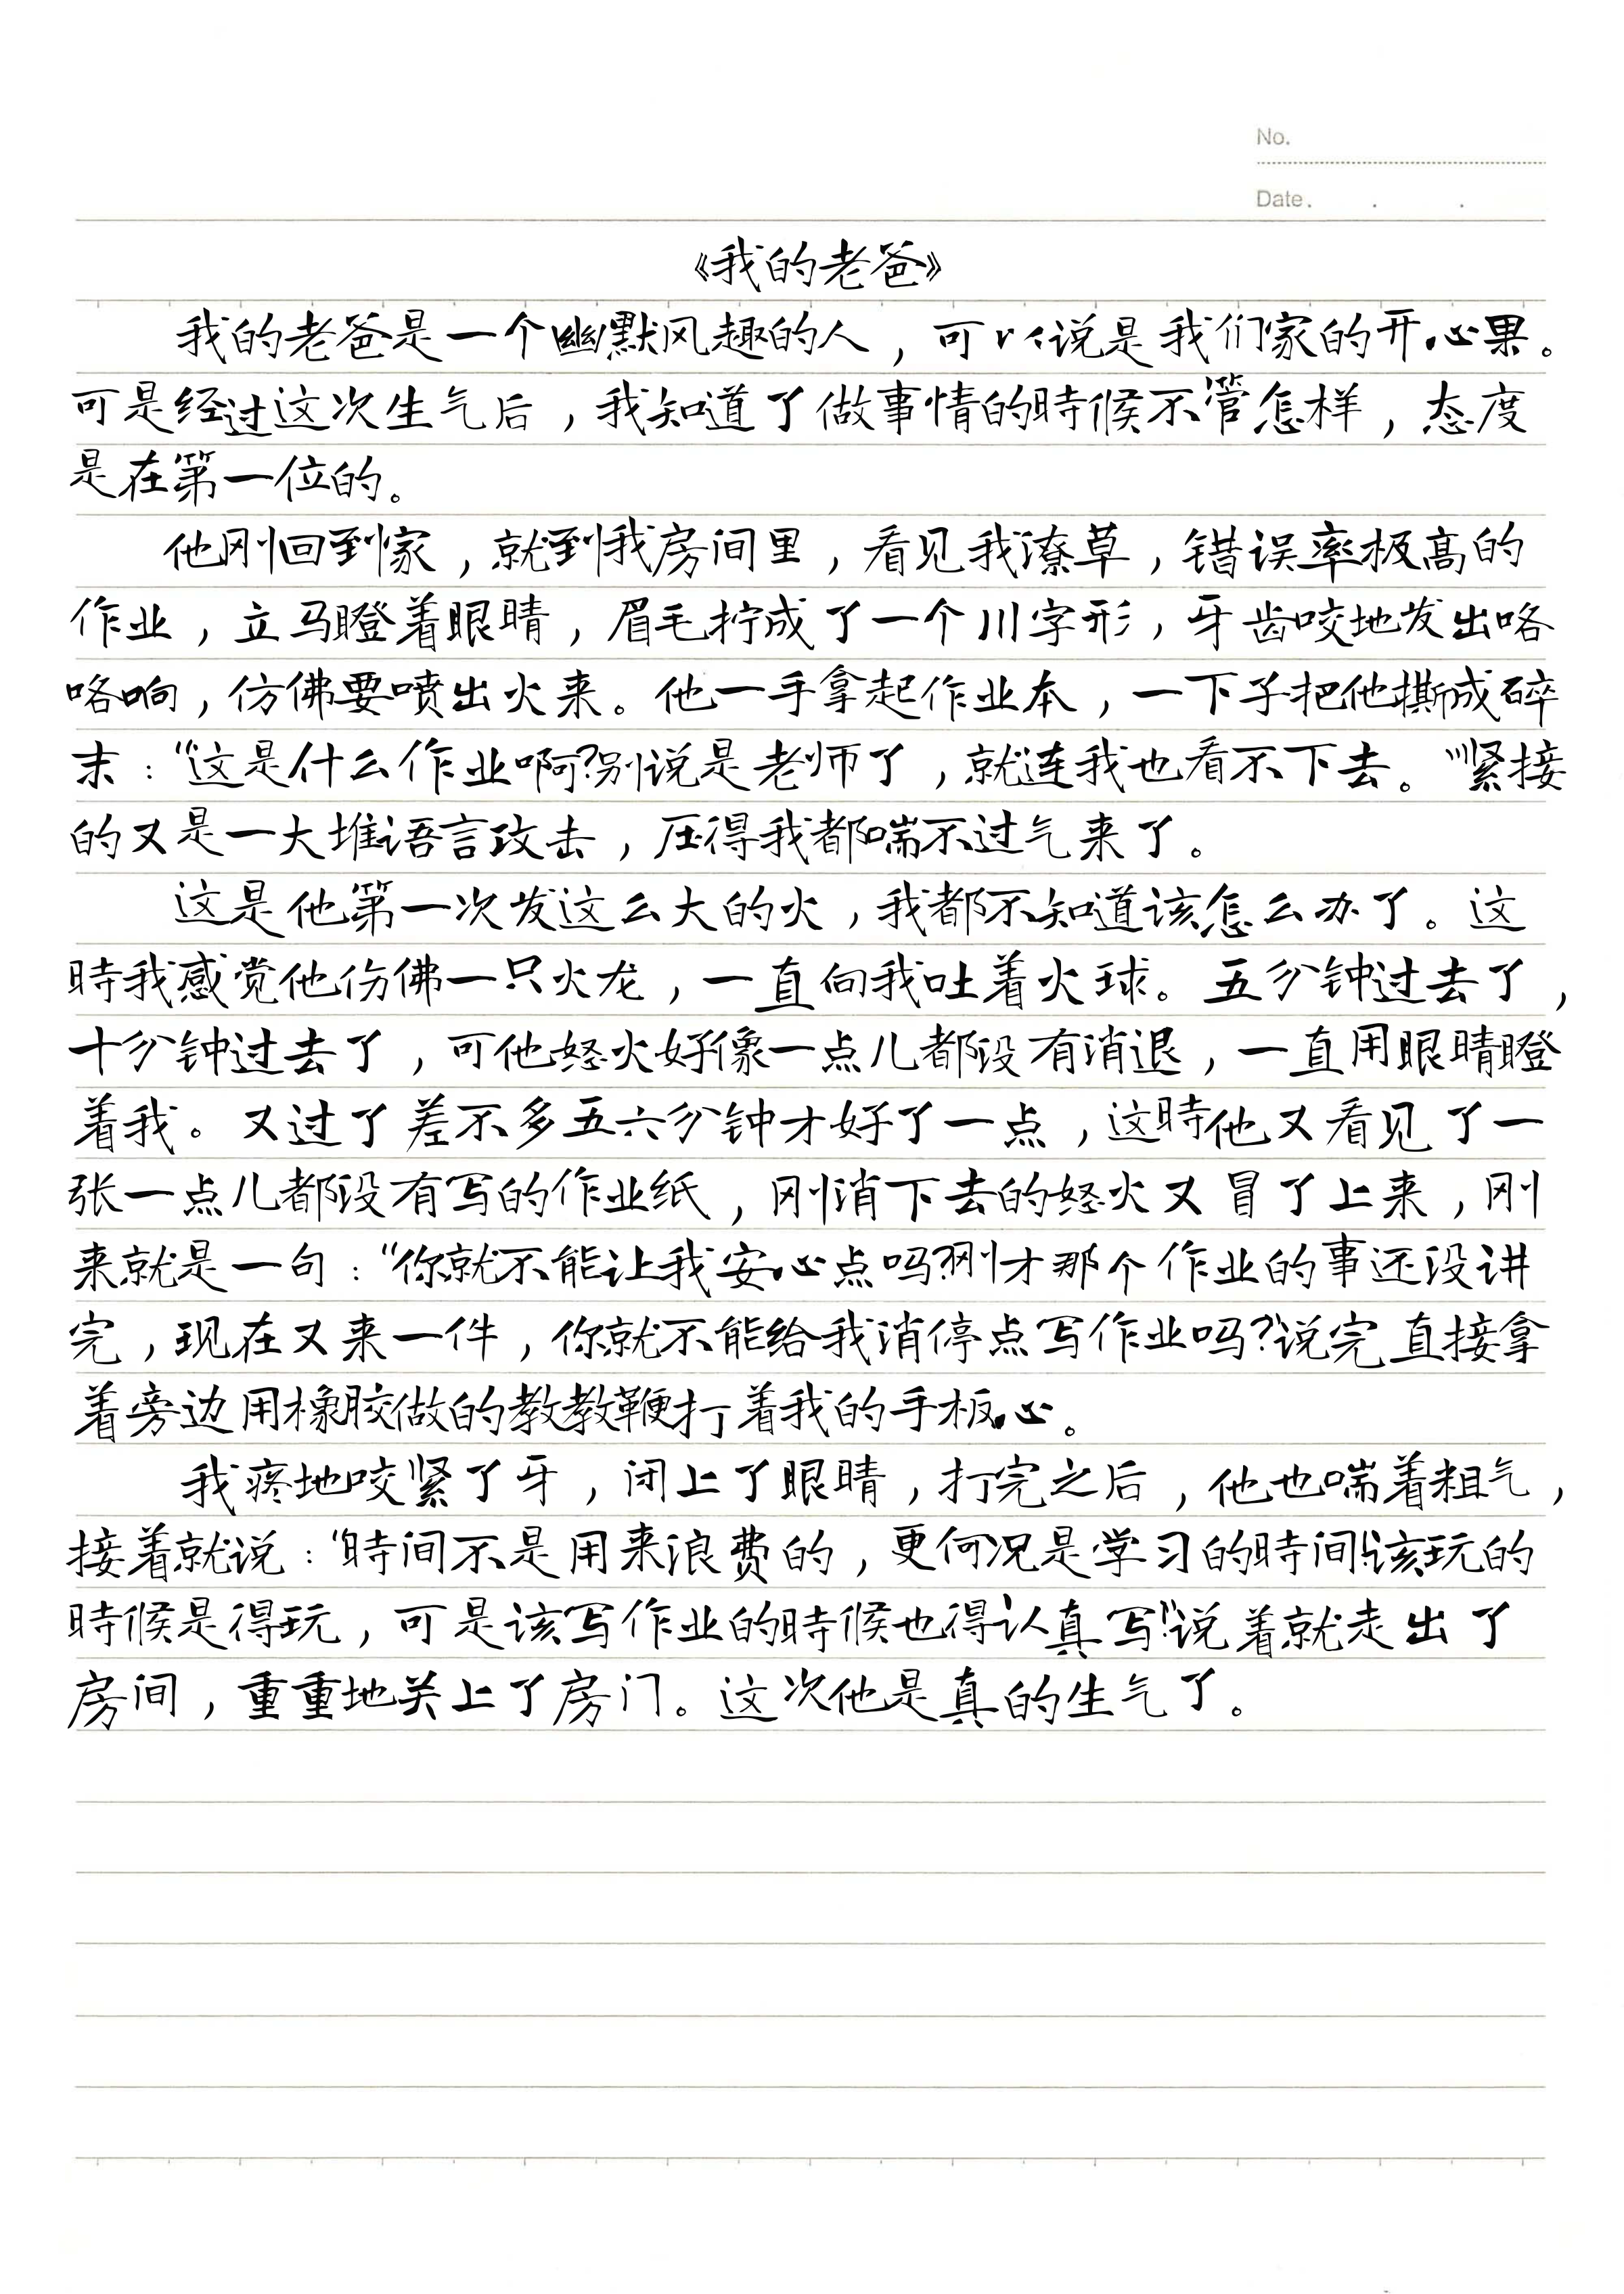 No.
Date.
《我的老爸》
我的老爸是一个幽默风趣的人，可以说是我们家的开心果。
可是经过这次生气后，我知道了做事情的時候不管怎样，态度
是在第一位的。
他刚回到家，就到我房间里，看见我潦草，错误率极高的
作业，立马瞪着眼睛，眉毛拧成了一个川字形，牙齿咬地发出咯
咯响，仿佛要喷出火来。他一手拿起作业本，一下子把他撕成碎
末：“这是什么作业啊?别说是老师了，就连我也看不下去。”紧接
的又是一大堆语言攻击，压得我都喘不过气来了。
这是他第一次发这么大的火，我都不知道该怎么办了。这
時我感觉他仿佛一只火龙，一直向我吐着火球。五分钟过去了，
十分钟过去了，可他怒火好像一点儿都没有消退，一直用眼睛瞪
着我。又过了差不多五六分钟才好了一点，这時他又看见了一
张一点儿都没有写的作业纸，刚消下去的怒火又冒了上来，刚
来就是一句：“你就不能让我安心点吗?刚才那个作业的事还没讲
完，现在又来一件，你就不能给我消停点写作业吗?”说完直接拿
着旁边用橡胶做的教教鞭打着我的手板心。
我疼地咬紧了牙，闭上了眼睛，打完之后，他也喘着粗气，
接着就说：“時间不是用来浪费的，更何况是学习的時间!该玩的
時候是得玩，可是该写作业的時候也得认真写!”说着就走出了
房间，重重地关上了房门。这次他是真的生气了。